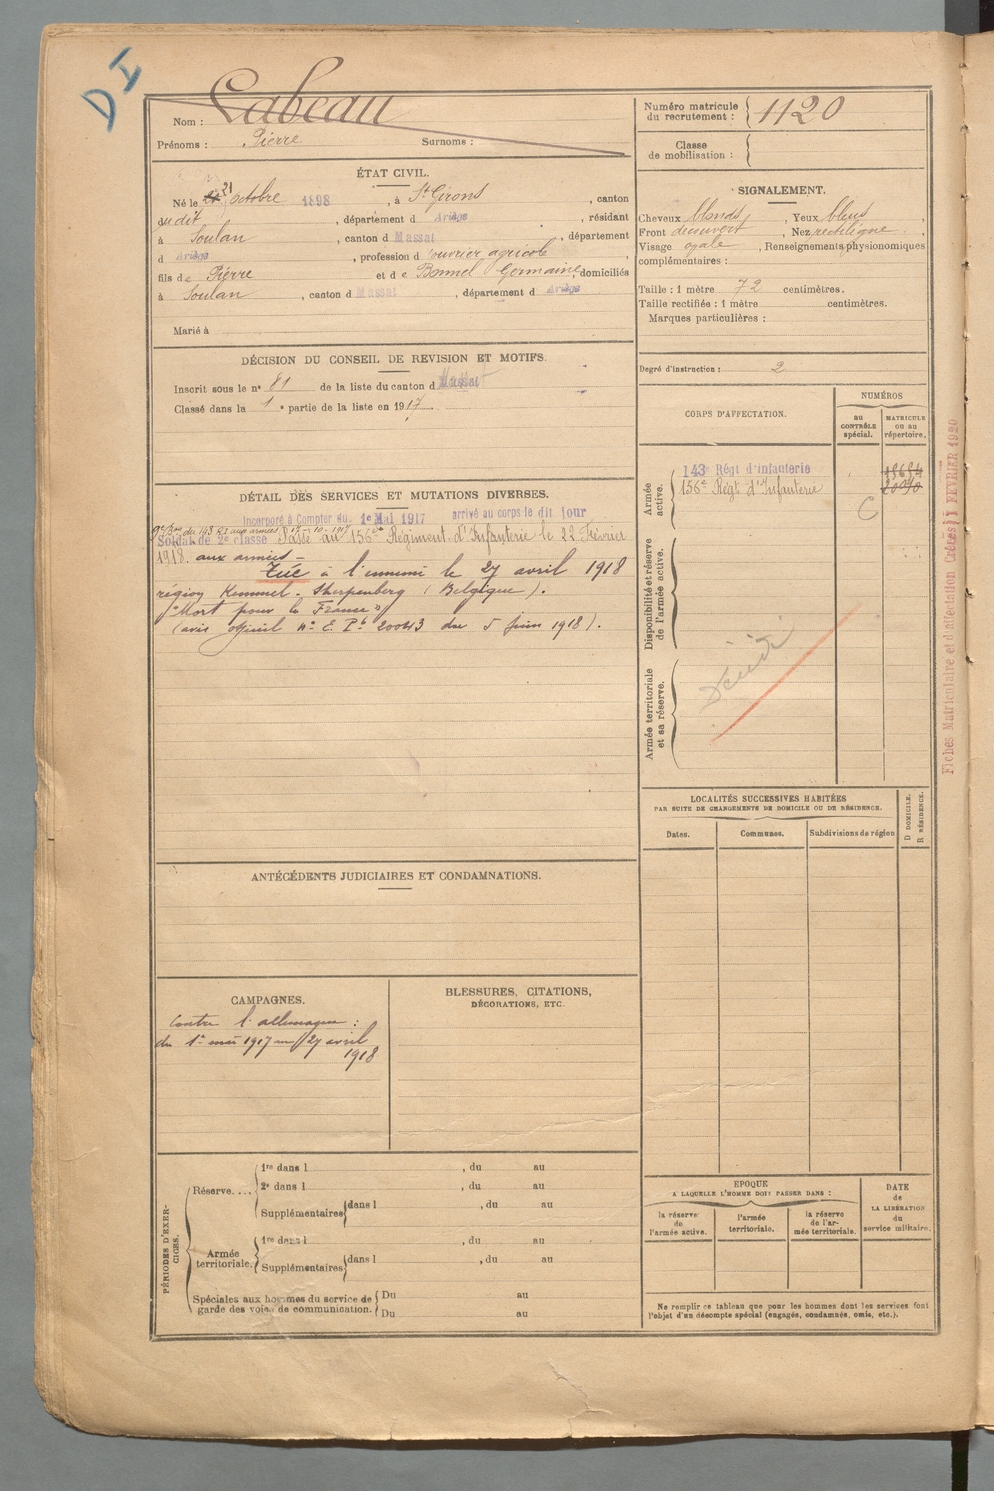 D I
Nom : Labeau
Prénoms : Pierre Surnoms :
Numéro matricule
du recrutement : 1120
Classe
de mobilisation :
ÉTAT CIVIL.
Né le 21 Octobre 1898, à St Girons, canton
du dit, département d Ariège, résidant
à Soulan, canton d Massat, département
d Ariège, profession d'ouvrier agricole,
fils de Pierre et de Bonnel Germaine, domiciliés
à Soulan, canton d Massat, département d Ariège
Marié à
SIGNALEMENT.
Cheveux blonds, Yeux bleus,
Front découvert, Nez rectiligne,
Visage ovale, Renseignements physionomiques
complémentaires :
Taille : 1 mètre 72 centimètres.
Taille rectifiée : 1 mètre centimètres.
Marques particulières :
Degré d'instruction : 2
DÉCISION DU CONSEIL DE REVISION ET MOTIFS.
Inscrit sous le n° 81 de la liste du canton d Massat
Classé dans la 1e partie de la liste en 1917
DÉTAIL DES SERVICES ET MUTATIONS DIVERSES.
Incorporé à Compter du 1e Mai 1917 arrivé au corps le dit jour
du 143 RI aux armées 17-10-1917
Soldat de 2e classe Passé au 156e Régiment d'Infanterie le 22 Février
1918. aux armées -
Tué à l'ennemi le 27 avril 1918
région Kemmel - Sherpenberg (Belgique).
"Mort pour la France"
(avis officiel n° E. P. 20043 du 5 juin 1918).
CORPS D'AFFECTATION.
NUMÉROS
au
CONTRÔLE
spécial.
MATRICULE
ou au
répertoire.
Armée
active.
143e Régt d'infanterie
156e Régt d'Infanterie
C
Disponibilité et réserve
de l'armée active.
Armée territoriale
et sa réserve.
Décédé
Fiches Matriculaire et d'affectation Créées 1 FEVRIER 1920
ANTÉCÉDENTS JUDICIAIRES ET CONDAMNATIONS.
LOCALITÉS SUCCESSIVES HABITÉES
PAR SUITE DE CHANGEMENTS DE DOMICILE OU DE RÉSIDENCE.
Dates.
Communes.
Subdivisions de région
D DOMICILE.
R RÉSIDENCE.
CAMPAGNES.
Contre l'allemagne :
du 1er mai 1917 au 27 avril
1918
BLESSURES, CITATIONS,
DÉCORATIONS, ETC.
PÉRIODES D'EXER-
CICES.
Réserve....
1re dans l , du au
2e dans l , du au
Supplémentaires dans l , du au
Armée
territoriale.
1re dans l , du au
Supplémentaires dans l , du au
Spéciales aux hommes du service de
garde des voies de communication.
Du au
Du au
EPOQUE
A LAQUELLE L'HOMME DOIT PASSER DANS :
la réserve
de
l'armée active.
l'armée
territoriale.
la réserve
de l'ar-
mée territoriale.
DATE
de
LA LIBÉRATION
du
service militaire.
Ne remplir ce tableau que pour les hommes dont les services font
l'objet d'un décompte spécial (engagés, condamnés, omis, etc.).